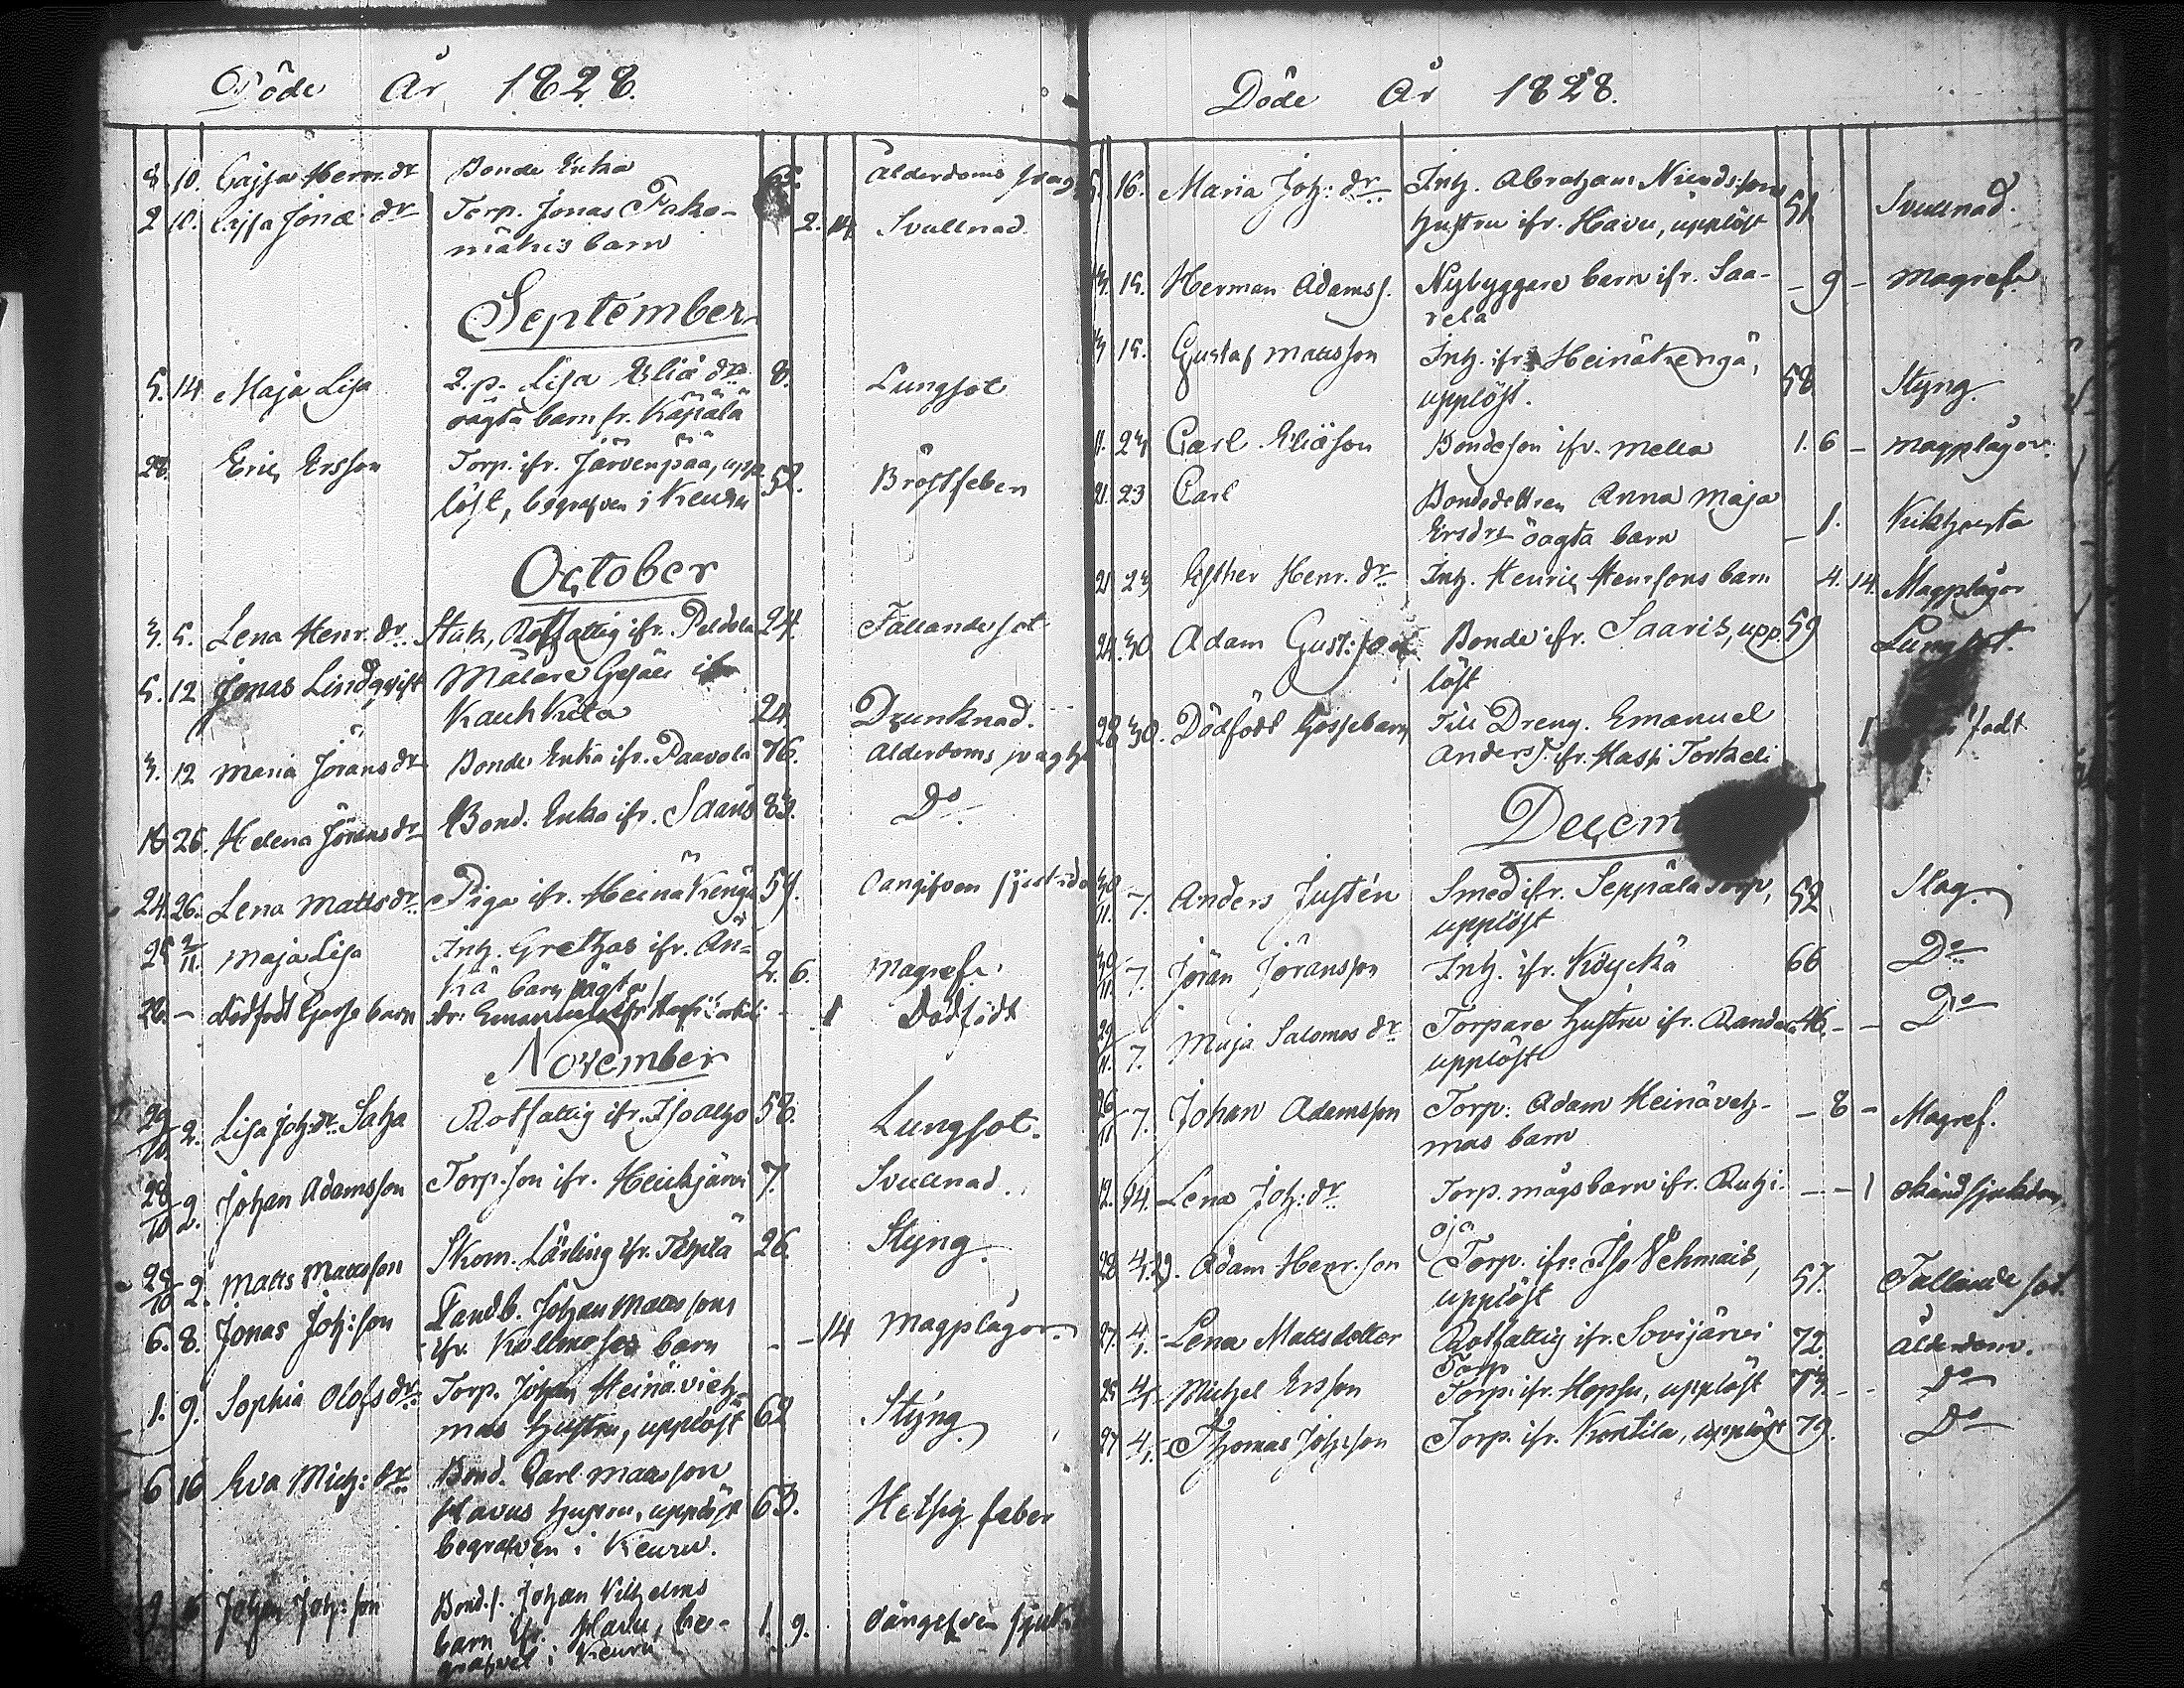 Döde År 1828.
10. Cajsa Herm. dr Bonde Enka Ålderdoms
2 10. Cajsa Jonæ dr Torp. Jonas Pako- 2. 14 Svullnad.
mäkis barn
September
5. 14 Maja Lisa 2. p. Lisa Eliæ drs 8. Lungsot
oägta barn fr. Käpälä
28. Eric Ersson Torp. ifr. Järvenpää, upp- 52. Bröstfeber
löst, begrafven i Keuru
October
3. 5. Lena Henr. dr Rotfattig ifr. Peldola 24. Fallandesot
5. 12 Jonas Lindqvist Målare Gesäll ifr
Kauhkula 24 Drunknad.
3. 12 Maria Jörans dr Bonde Enka ifr. Paavola 76. Alderdoms
16 26. Helena Jörans dr Bond. Enka ifr. Saaris 83. Do
24. 26. Lena Matts dr Piga ifr. Heinäkengä 54. Oangifven
25 2/11. Maja Lisa Inh. Grethas ifr. Än-
kä barn oägta 2. 6. Magref.
26. – dödfödt Gosse barn dr. Emanuels ifr – 1 Dödfödt
November
29/10 2. Lisa Joh: dr Saha Rotfattig ifr. Isoalho 58. Lungsot.
28/10 2. Johan Adamsson Torp. son ifr. Heinjärvi 7. Svullnad.
28/10 2. Matts Mattsson Skom. Lärling ifr. 26. Styng.
6. 8. Jonas Joh: son Landb. Johan Mattssons
ifr. barn – – 14 Magplågor
1. 9. Sophia Olofs dr Torp. Johan Heinävieh-
mas hustru, upplöst 62 Styng
6 16 Eva Mich: dr Bond. Carl Mattsson
Havus hustru, upplöst 63. Hetsig feber
begrafven i Keuru.
9 16 Johan Joh: son Bond. s. Johan Vilhelms
barn ifr. Havu, be- 1. 9. Oangifven
grafvet i Keuru
Döde År 1828.
16. Maria Joh: dr Inh. Abraham
hustru ifr. Havu, upplöst 51 Svullnad.
13. 15. Herman Adams s. Nybyggare barn ifr. Saa- – 9 – Magref.
rela
15. Gustaf Mattsson Inh. ifr. Heinäkengä,
upplöst. 58. Styng
11. 23 Carl Eliæson Bondeson ifr. Mella 1. 6 – Magplågor.
21. 23 Carl Bondedottren Anna Maja
Ersdrs oägta barn – 1. Kikhosta
21 23 Esther Henr. dr Inh. Henric Henrsons barn 4. 14. Magplågor
24. 30 Adam Gust: son Bonde ifr. Saaris, upp- 59 Lungsot.
löst
28 30. Dödfödt Gossebarn Till Dreng. Emanuel
Anders s. ifr. Haspi Torkeli 1 födt
Decem
30/11. 7. Anders Justén Smed ifr. Seppälä Torp, 52 Slag
upplöst
30/11. 7. Jöran Jöransson Inh. ifr. Köyckä 66 Do
29/11. 7. Maja Salomos dr Torpare hustru ifr. 46. – – Do
upplöst
26/11 7. Johan Adamsson Torp: Adam Heinäveh- – 8 – Magref.
mas barn
12. 14. Lena Joh: dr Torp. mågs barn ifr. Ruhi- – – 1
oja
28 4/1. Adam Henr. son Torp. ifr. Iso Vehmais,
upplöst 57. Fallande sot.
27. 4/1. Lena Mattsdotter Rotfattig ifr. Sovijärvi 72. Ålderdom.
Torp
25 4/1. Michel Ersson Torp. ifr. Hopsu, upplöst 73. – – Do
27 4/1. Thomas Joh: son Torp. ifr. Kontila, upplöst 79. Do